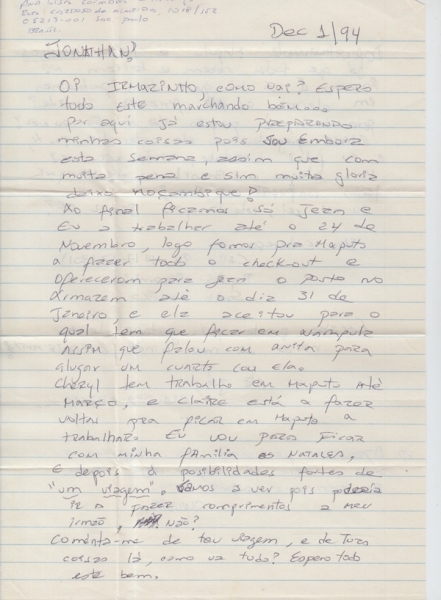 05213-001 São Paulo
Brasil
Dec 1/94
JONATHAN!
Oi IRMAZINHO, como vai? Espero
todo este marchando bem....
por aqui já estou PREPARANDO
minhas coisas pois SOU Embora
esta semana, assim que com
muita pena e sim muita gloria
deixo Moçambique!
Ao final ficamos só Jean e
Eu a trabalher até o 24 de
Novembro, logo fomos pra Maputo
a fazer todo o check-out e
ofereceram para Jean o posto no
armazem até o dia 31 de
Janeiro, e ela aceitou para o
qual tem que ficar em Nampula
Assim que falou com Anita para
alugar um cuarto com ela.
Cheryl tem trabalho em Maputo Até
MARÇO, e Claire está a fazer
voltas pra ficar em Maputo a
trabalhar. Eu vou para FICAR
com minha familia as NATALES,
E depois a posibilidades fortes de
"um viagem". Vamos a ver pois poderia
ir a fazer comprimentos a meu
irmão, Não?
Comenta-me de teu viagem, e de Tuas
coisas lá, como va tudo? Espero todo
este bem.